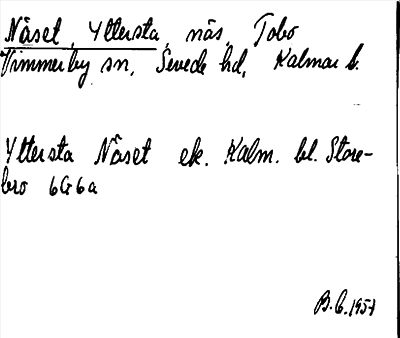 Näset, Yttersta, näs, Tobo
Vimmerby sn, Sevede hd, Kalmar l.
Yttersta Näset ek. Kalm. bl. Store-
bro 6G6a
B.G. 1957